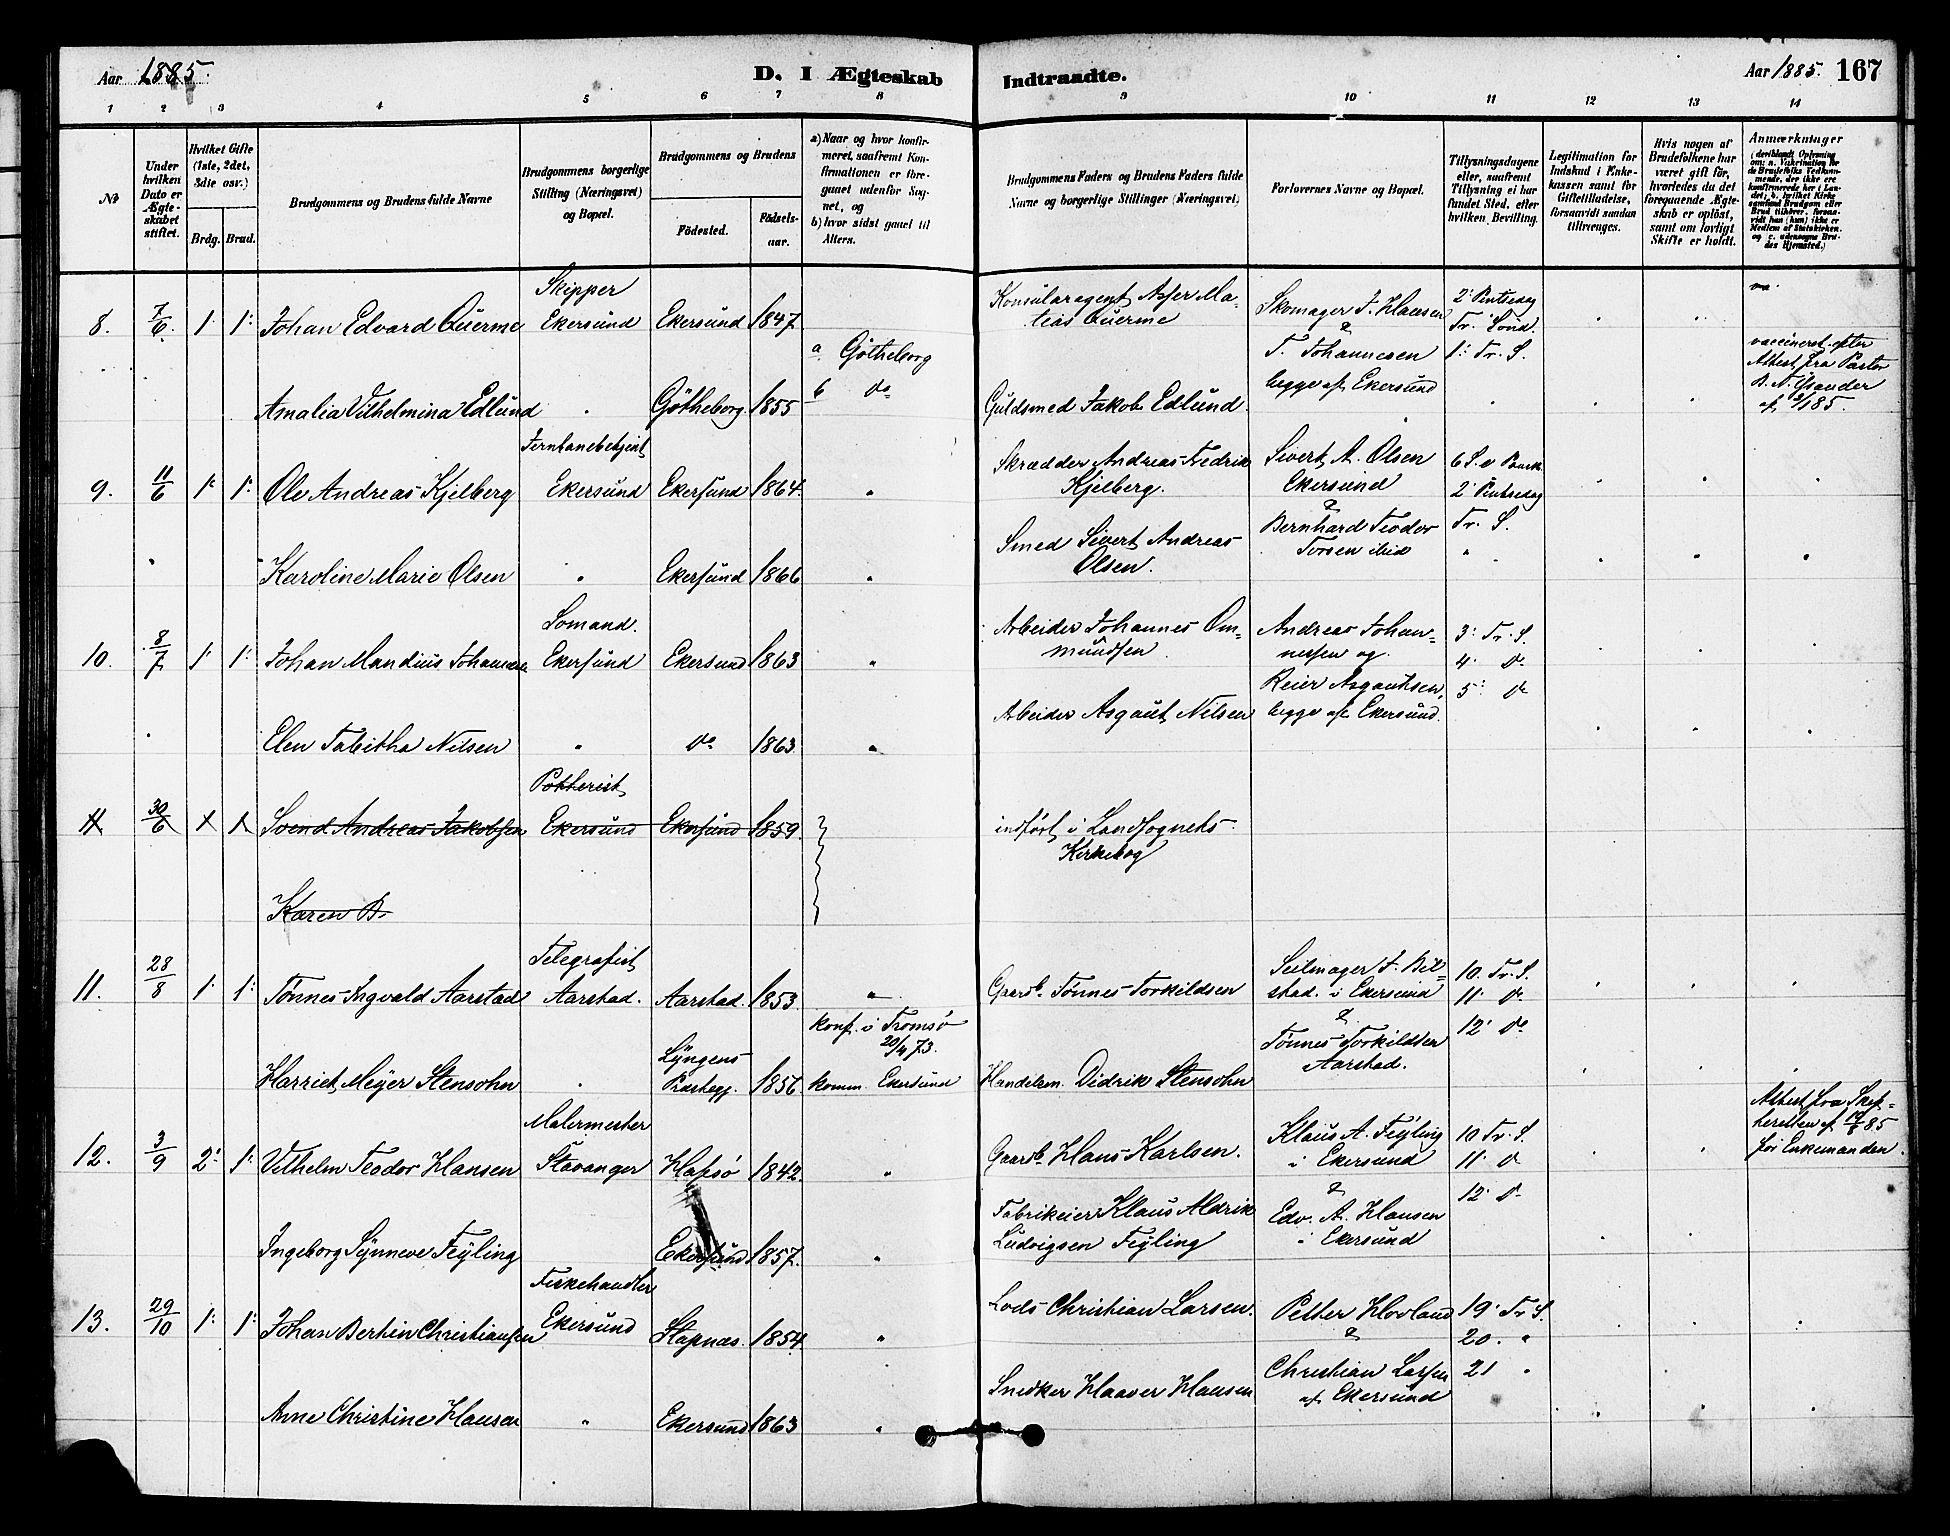 Aar 1885.
D. I Ægteskab Indtraadte.
Aar 1885. 167
1 2 3 4 5 6 7 8 9 10 11 12 13 14
№
Under hvilken Dato er Ægteskabet stiftet.
Hvilket Gifte (1ste, 2det, 3die osv.)
Brdg. Brud.
Brudgommens og Brudens fulde Navne
Brudgommens borgerlige Stilling (Næringsvei) og Bopæl.
Brudgommens og Brudens
Fødested.
Fødselsaar.
a) Naar og hvor konfirmeret, saafremt Konfirmationen er foregaaet udenfor Sognet, og
b) hvor sidst gaaet til Alters.
Brudgommens Faders og Brudens Faders fulde Navne og borgerlige Stillinger (Næringsvei)
Forlovernes Navne og Bopæl.
Tillysningsdagene eller, saafremt Tillysning ei har fundet Sted, efter hvilken Bevilling.
Legitimation for Indskud i Enkekassen samt for Giftetilladelse, forsaavidt saadan tiltrænges.
Hvis nogen af Brudefolkene har været gift før, hvorledes da det foregaaende Ægteskab er opløst, samt om lovligt Skifte er holdt.
Anmærkninger
8. 7/6. 1. 1. Johan Edvard Querme Skipper Ekersund Ekersund 1847. Konsularagent Asser Matias Querme Skomager J. Hansen & T. Johannesen begge af Ekersund 2' Pintsedag Tr. Sönd. 1: Tr. S.
Amalia Vilhelmina Edlund Götheborg. 1855 a. Götheborg b do Guldsmed Jakob Edlund. vaccineret efter Attest fra Pastor
9. 11/6 1: 1: Ole Andreas Kjelberg Ekersund Ekersund 1864. Skrædder Andreas Fredrik Kjelberg. Sivert A. Olsen Ekersund & Bernhard Teodor Torsen ibid 2' Pintsedag Tr. S.
Karoline Marie Olsen Ekersund 1866 Smed Sivert Andreas Olsen.
10. 8/7 1. 1: Johan Mandius Johannesen Somand. Ekersund Ekersund 1863 Arbeider Johannes Ommundsen Andreas Johannessen og Reier Asgautsen, begge af Ekersund. 3: Tr. S. 4. do 5: do
Elen Tabitha Nilsen do 1863 Arbeider Asgaut Nilsen
11 30/6 1 1 Svend Andreas Jakobsen Potterist Ekersund Ekersund 1859. indført i Landsognets Kirkebog
Karen B.
11. 28/8 1. 1: Tönnes Ingvald Aarstad Telegrafist Aarstad. Aarstad. 1853 Gaardb. Tönnes Torkildsen Seilmager J. Bilstad. i Ekersund & Tönnes Torkildsen Aarstad. 10. Tr. S. 11. do 12' do
Harriet Meyer Stensohn Lyngens Præstegj. 1856. konf. i Tromsö 20/4 73. komm. Ekersund Handelsm. Didrik Stensohn
12. 3/9 2' 1: Vilhelm Teodor Hansen Malermester Stavanger Hafsö 1842. Gaardb. Hans Karlsen. Klaus A. Feyling i Ekersund & Edv. A. Hansen i Ekersund 10 Tr. S. 11. do 12' do Attest fra Skifteretten af for Enkemanden.
Ingeborg Synneve Feyling Ekersund 1857. Fabrikeier Klaus Aldrik Ludvigsen Feyling
13. 29/10 1. 1: Johan Bertin Christiansen Fiskehandler Ekersund Stapnæs. 1854. Lods Christian Larsen. Petter Hovland & Christian Larsen af Ekersund 19' Tr. S. 20. " 21 "
Anne Christine Hansen Ekersund 1863 Snedker Haaver Hansen